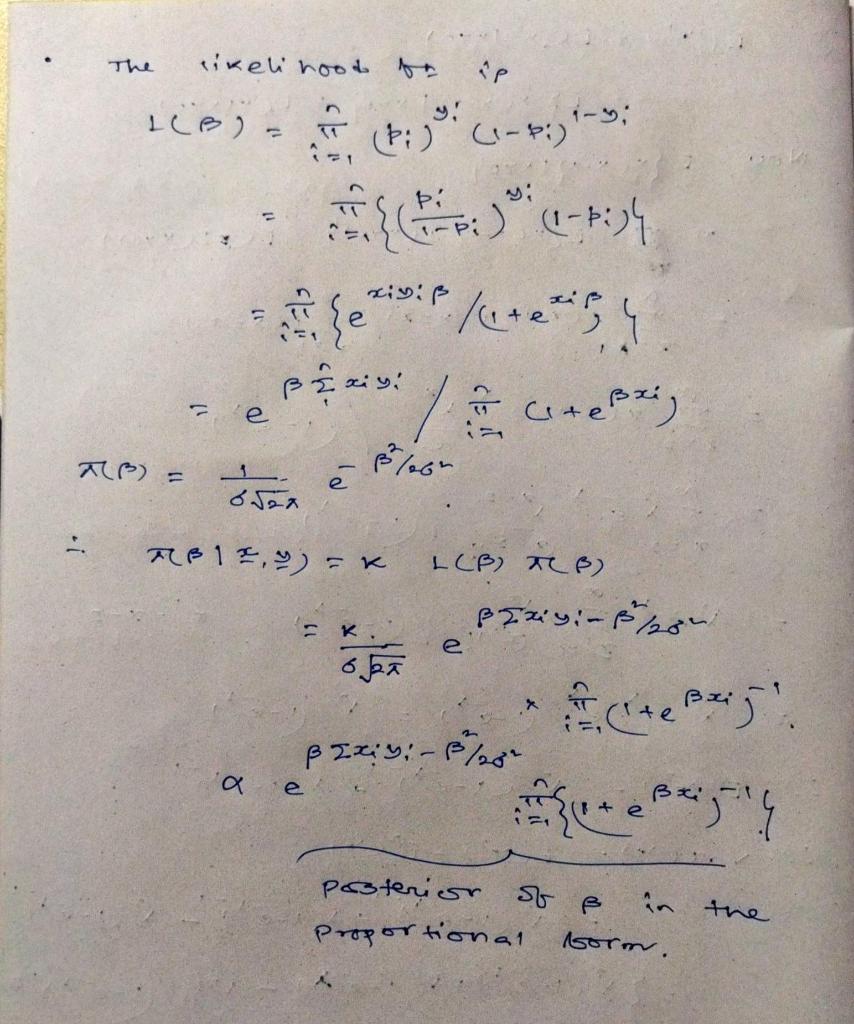 • The likelihood fn is
L(β) = ∏_{i=1}^{n} (p_i)^{y_i} (1-p_i)^{1-y_i}
= ∏_{i=1}^{n} {(p_i/(1-p_i))^{y_i} (1-p_i)}
= ∏_{i=1}^{n} {e^{x_i y_i β} / (1+e^{x_i β})}
= e^{β Σ_1^n x_i y_i} / ∏_{i=1}^{n} (1+e^{βx_i})
π(β) = 1/(σ√2π) e^{-β²/2σ²}
∴ π(β|x, y) = K L(β) π(β)
= K . /(σ√2π) e^{βΣx_i y_i - β²/2σ²}
× ∏_{i=1}^{n} (1+e^{βx_i})^{-1}.
∝ e^{βΣx_i y_i - β²/2σ²} ∏_{i=1}^{n} {(1+e^{βx_i})^{-1}}
posterior of β in the
proportional form.